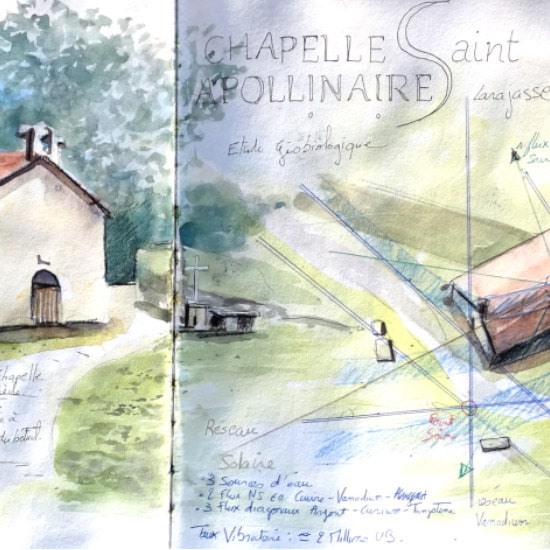 CHAPELLE Saint
APOLLINAIRE
Larajasse
Etude Géobiologique
flux
Chapelle
à
du bétail.
Réseau
Solaire
Point
Sour
- 3 Sources d'eau
- 2 flux NS EO Cuivre - Vanadium -
- 3 Flux diagonaux Argent - Curium - Tungstène
Taux Vibratoire : ≈ 2 Millions UB.
Réseau
Vanadium